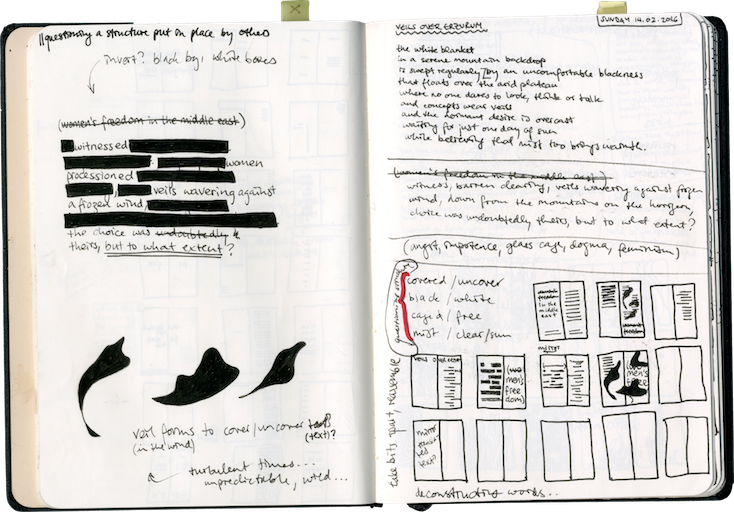 //questioning a structure put in place by others
invert? black bg, white boxes
(women's freedom in the middle east)
witnessed
women
processioned
veils wavering against
a frozed wind,
the choice was undoubtedly
theirs, but to what extent?
veil forms to cover/uncover
(in the wind)
(text)?
turbulent times...
unpredictable,
VEILS OVER ERZURUM.
SUNDAY 14.02.2016
the white blanket
in a serene mountain backdrop
is swept regularly by an uncomfortable blackness
that floats over the arid plateau
where no one dares to look, think or talk
and concepts wear veils
and the normant desire is overcast
waiting for just one day of sun
while believing that mist too brings warmth.
(women's freedom in the middle east)
witness, barren clearing, veils wavering against frozen
wind, down from the mountains on the horizon,
choice was undoubtedly theirs, but to what extent?
(angst, impotence, glass cage, dogma, feminism)
questioning
covered / uncover
black / white
caged / free
mist / clear/sun
freedom
in the middle
east
VEILS OVER
(wo
men's
free
dom)
men's
free
take bits apart, reassemble
deconstructing words..